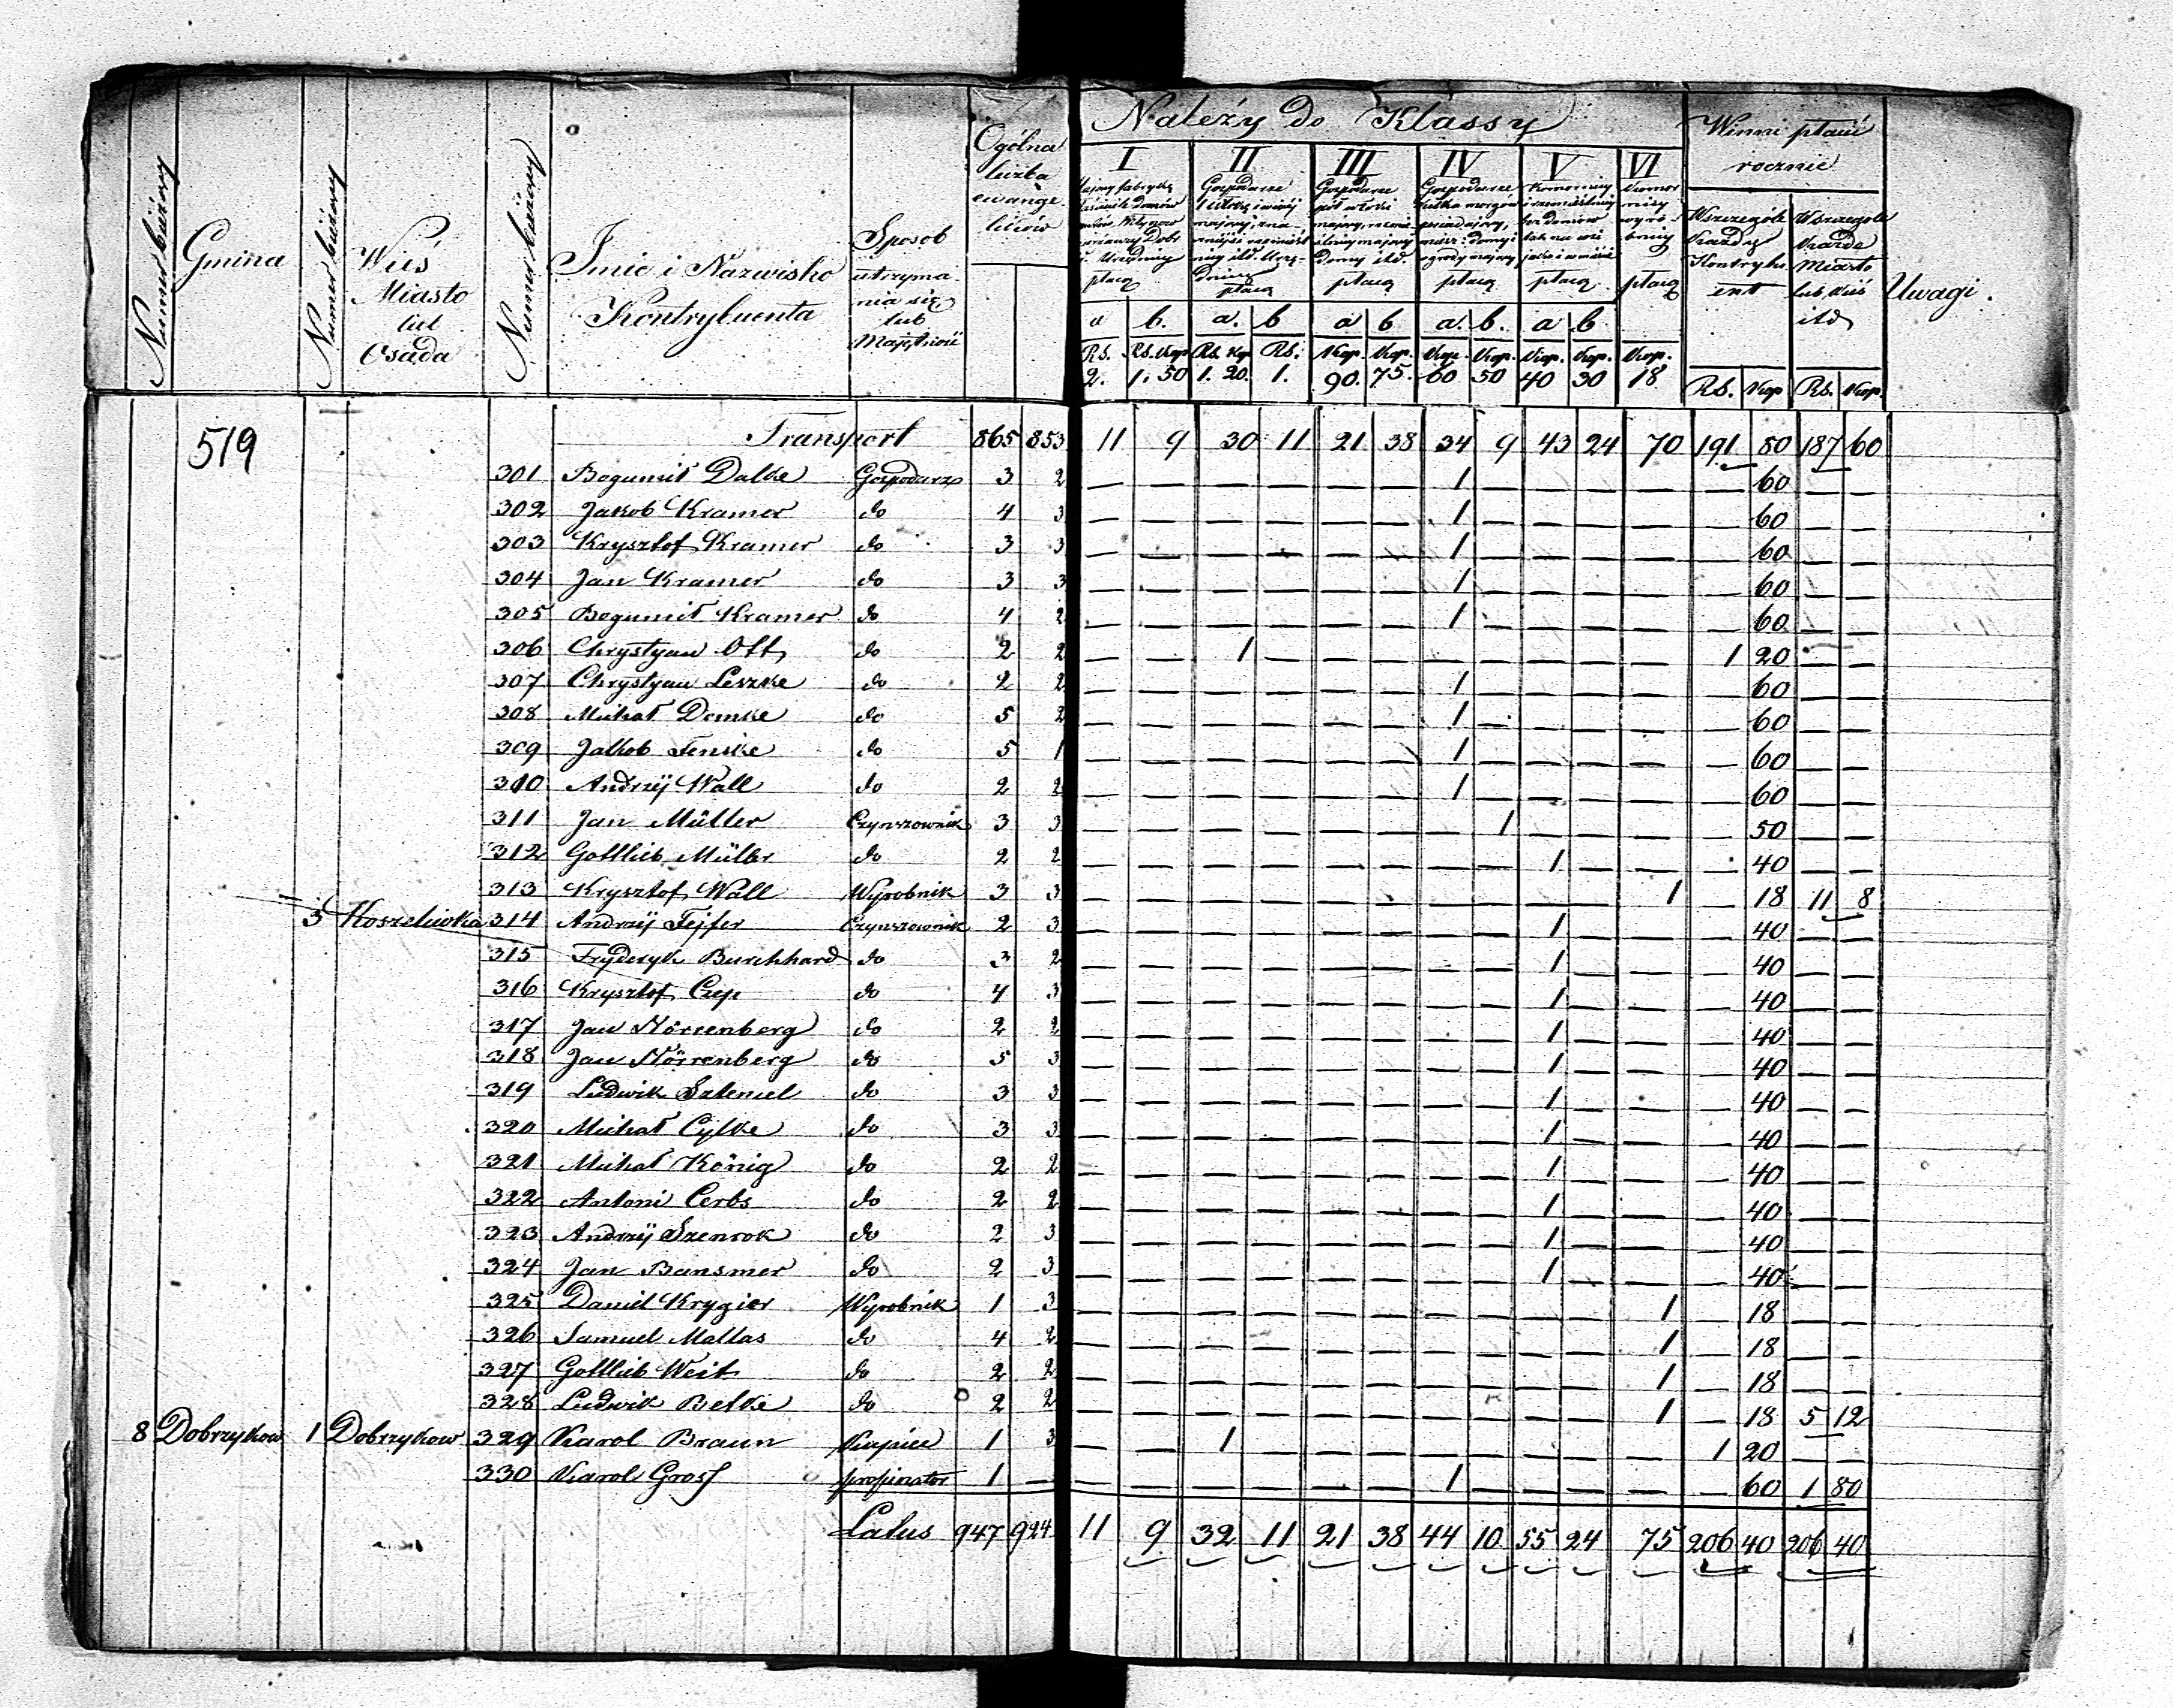 Numer bieżący
Gmina
Numer bieżący
Wieś Miasto lub Osada
Numer bieżący
Imie i Nazwisko Kontrybuenta
Sposob utrzymania się lub Majętność
Ogólna liczba ewangelików
Należy do Klassy
I II III IV V VI
Gospodarze
płacą płacą płacą płacą płacą płacą
a b. a. b a b a. b. a b
Rs. Rs. Kop Rs. Kop Rs. Kop. Kop. Kop. Kop. Kop. Kop. Kop.
2. 1. 50 1. 20. 1. 90. 75. 60 50 40 30 18
Winni płacić rocznie
Wszczególe Każdy Kontrybuent
Wszczególe Każde Miasto lub Wieś itd
Rs. Kop Rs. Kop.
Uwagi.
519
Transport 865 853 11 9 30 11 21 38 34 9 43 24 70 191 80 187 60
301 Bogumił Dalke Gospodarz 3 2 — — — — — — 1 — — — — — 60 — —
302 Jakob Kramer do 4 3 — — — — — — 1 — — — — — 60 — —
303 Krysztof Kramer do 3 3 — — — — — — 1 — — — — — 60 — —
304 Jan Kramer do 3 3 — — — — — — 1 — — — — — 60 — —
305 Bogumił Kramer do 4 2 — — — — — — 1 — — — — — 60 — —
306 Chrystyan Ott do 2 2 — — 1 — — — — — — — — 1 20 — —
307 Chrystyan Leszke do 2 2 — — — — — — 1 — — — — — 60 — —
308 Michał Domke do 5 2 — — — — — — 1 — — — — — 60 — —
309 Jakob Fenske do 5 1 — — — — — — 1 — — — — — 60 — —
310 Andrzij Wall do 2 2 — — — — — — 1 — — — — — 60 — —
311 Jan Müller Czynszownik 3 3 — — — — — — — 1 — — — — 50 — —
312 Gottlieb Müller do 2 2 — — — — — — — — 1 — — — 40 — —
313 Krysztof Wall Wyrobnik 3 3 — — — — — — — — — — 1 — 18 11 8
3 Koszelówka 314 Andrzij Fejfer Czynszownik 2 3 — — — — — — — — 1 — — — 40 — —
315 Fryderyk Burchhard do 3 2 — — — — — — — — 1 — — — 40 — —
316 Krysztof Czep do 4 3 — — — — — — — — 1 — — — 40 — —
317 Jan Nörrenberg do 2 2 — — — — — — — — 1 — — — 40 — —
318 Jan Nörrenberg do 5 3 — — — — — — — — 1 — — — 40 — —
319 Ludwik Sztencel do 3 3 — — — — — — — — 1 — — — 40 — —
320 Michał Cylke do 3 3 — — — — — — — — 1 — — — 40 — —
321 Michał König do 2 2 — — — — — — — — 1 — — — 40 — —
322 Antoni Cerbs do 2 2 — — — — — — — — 1 — — — 40 — —
323 Andrzij Szenrok do 2 3 — — — — — — — — 1 — — — 40 — —
324 Jan Bansmer do 2 3 — — — — — — — — 1 — — — 40 — —
325 Daniel Krygier Wyrobnik 1 3 — — — — — — — — — — 1 — 18 — —
326 Samuel Mallas do 4 2 — — — — — — — — — — 1 — 18 — —
327 Gottlieb Weit do 2 2 — — — — — — — — — — 1 — 18 — —
328 Ludwik Belke do 2 2 — — — — — — — — — — 1 — 18 5 12
8 Dobrzykow 1 Dobrzykow 329 Karol Braun Kupiec 1 3 — — 1 — — — — — — — — 1 20 — —
330 Karol Gross propinator 1 — — — — — — — 1 — — — — — 60 1 80
Latus 947 924 11 9 32 11 21 38 44 10 55 24 75 206 40 206 40